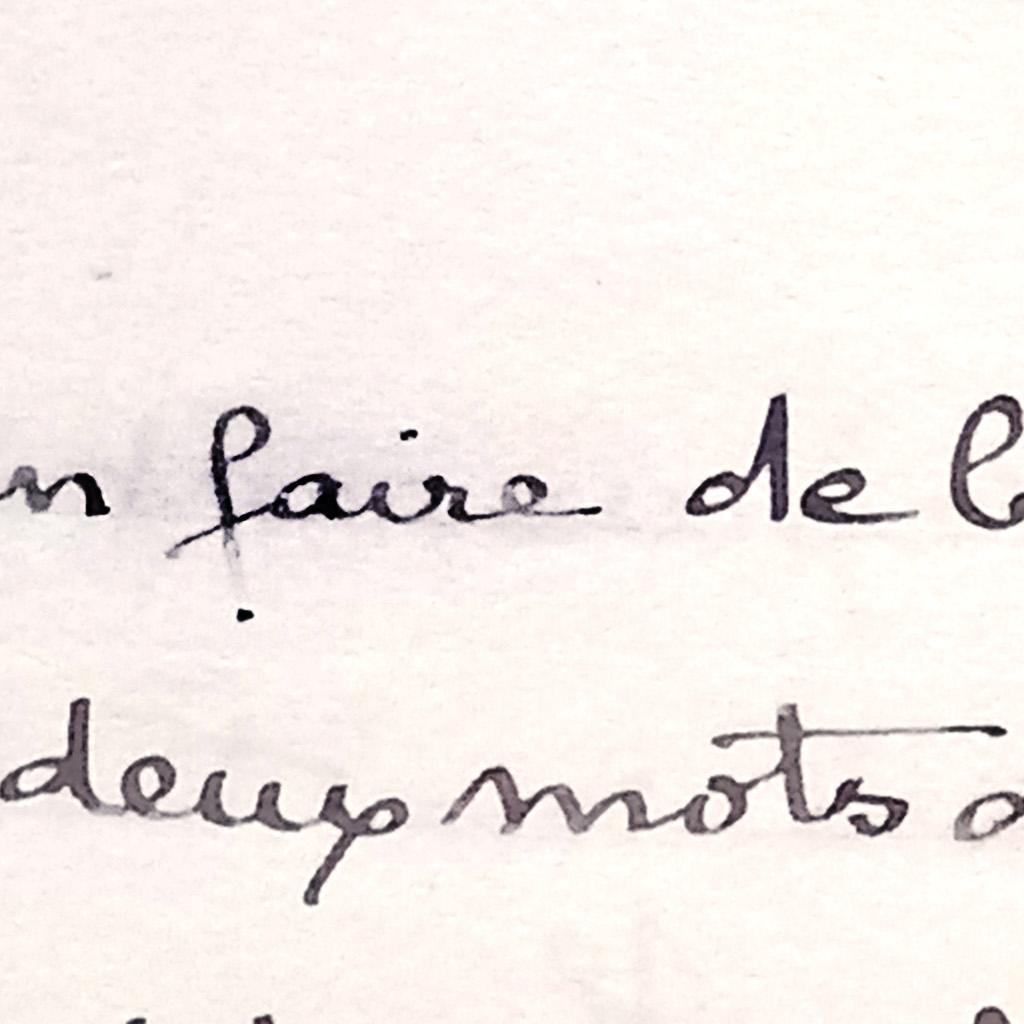 faire de
deux mots